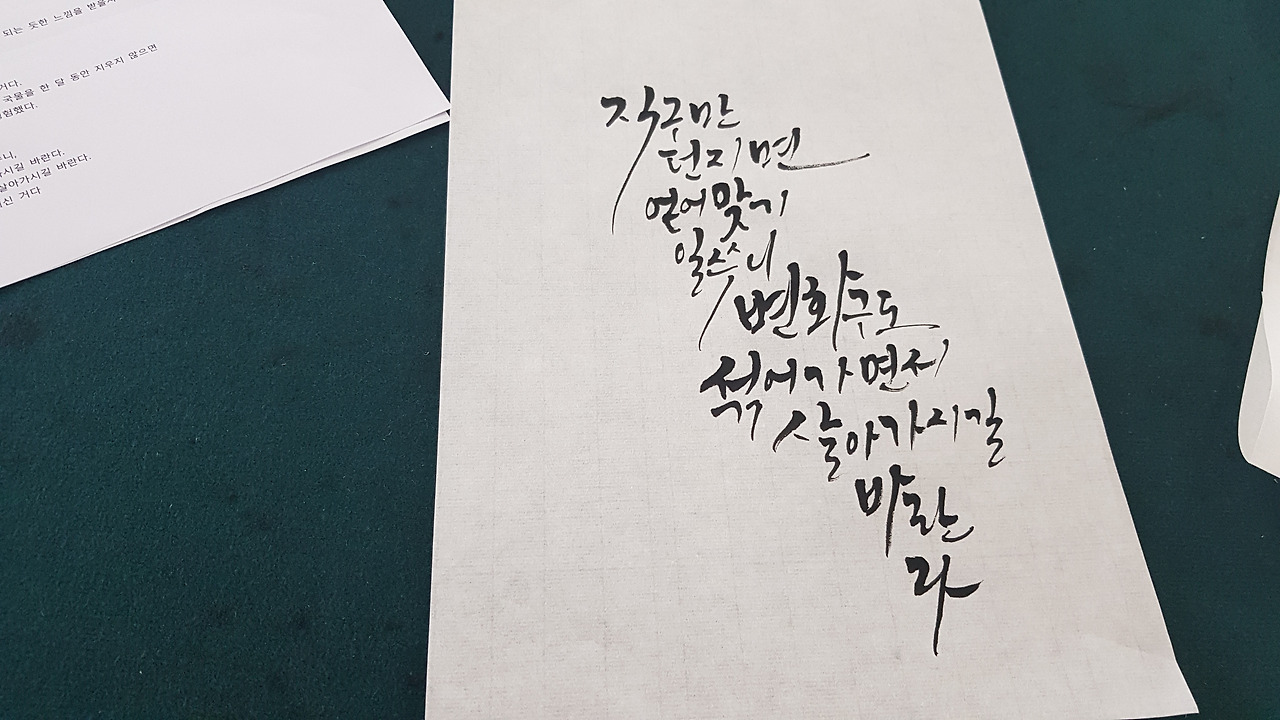 되는 듯한 느낌을 받을
거다.
국물을 한 달 동안 지우지 않으면
험했다.
니,
사시길 바란다.
살아가시길 바란다.
신 거다
직구만
던지면
얻어맞기
일쑤니
변화구도
섞어가면서
살아가시길
바란
다